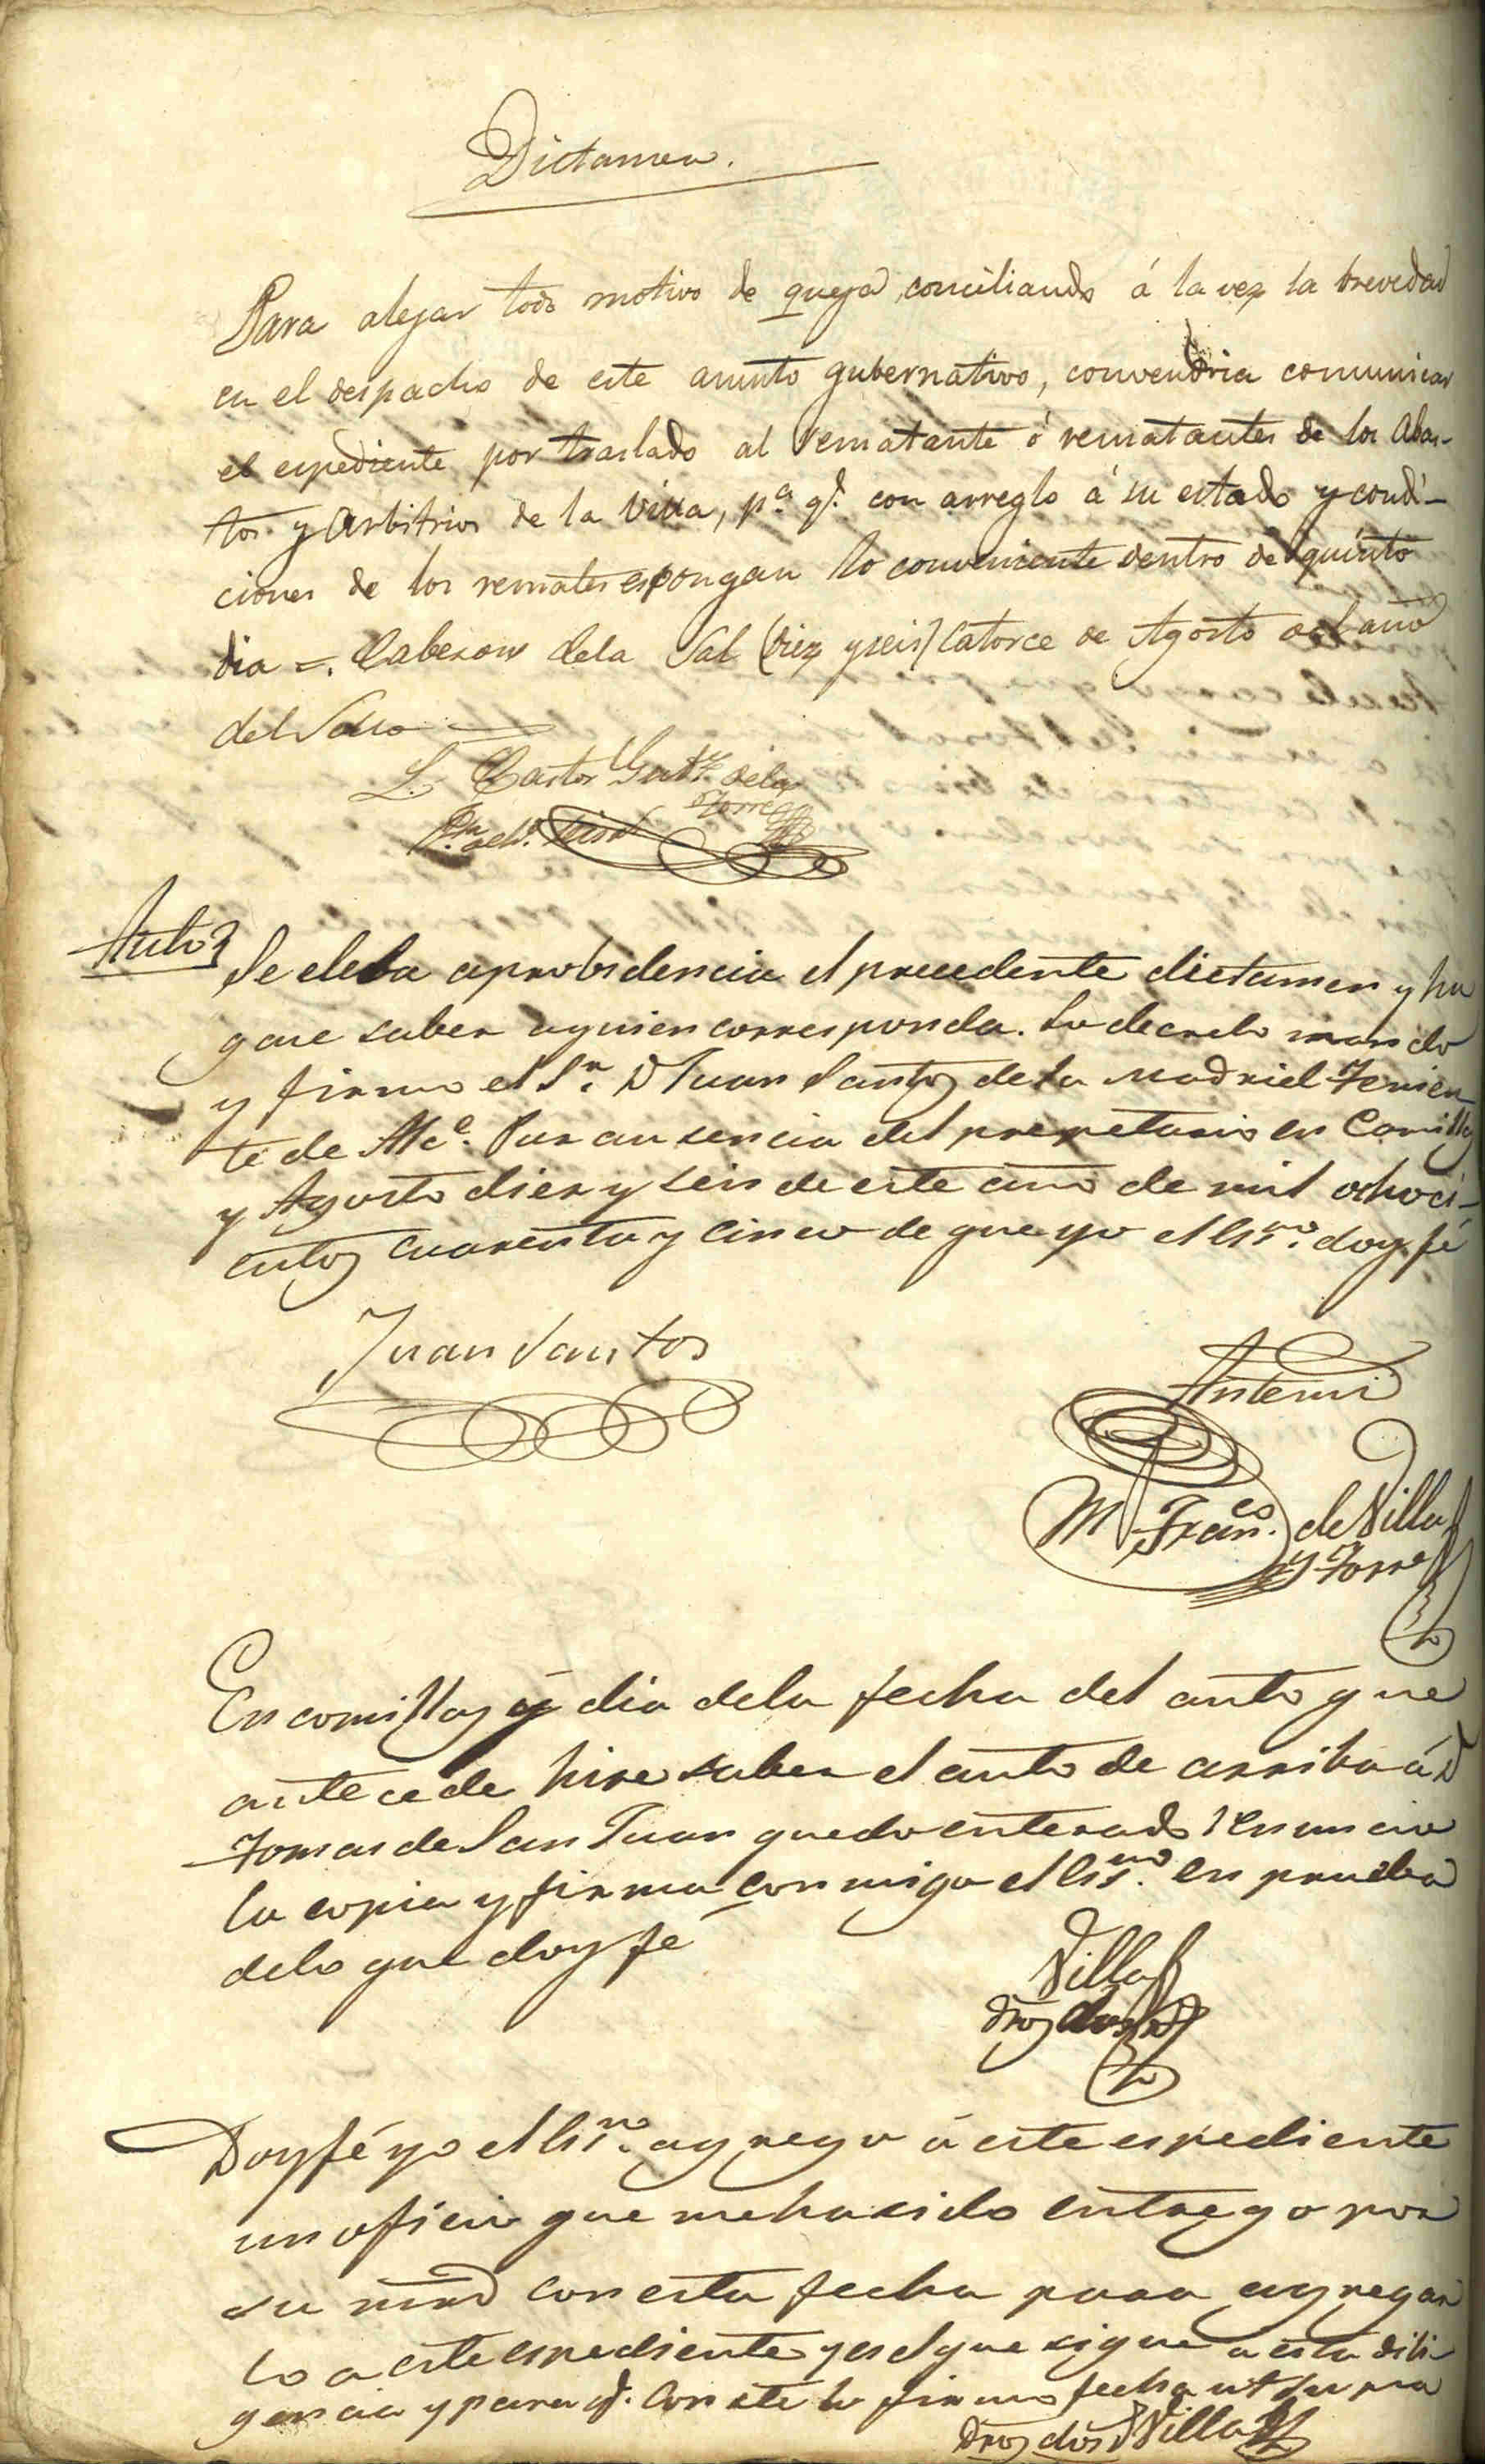 Dictamen.
Para alejar todo motivo de queja, conciliando á la vez la brevedad
en el despacho de este asunto gubernativo, convendria comunicar
el espediente por traslado al rematante ó rematantes de los Abas-
tos y Arbitrios de la Villa, p.ª q.e con arreglo á su estado y condi-
ciones de los remates espongan lo conveniente dentro de quinto
dia =. Cabezon dela Sal (diez y seis) Catorce de Agosto del año
del Sello
L. Castor Gut.z dela
Torre
Auto
Se eleba aprobidencia el precedente dictamen y ha
gase saber aquien corresponda. Lo decreto mando
y firmo el S.r D Juan Santos dela Madriel Tenien-
te de Alc.e Por ausencia del propietario en Comillas
y Agosto diez y seis de este año de mil ochoci-
entos cuarenta y cinco de que yo el Es.no doy fé
Juan Santos
Antemi
M Fran.co de Villa
y Torre
En comillas y dia dela fecha del auto que
antecede hice saber el auto de arriba á D
Tomas de San Juan quedo enterado renuncio
la copia y firma conmigo el Es.no en prueba
delo que doy fé
Villa
Dros dos
Doy fé yo el Es.no agrego á este espediente
un oficio que meha sido entrego por
su mrd con esta fecha para agregar
lo a este espediente y es el que sigue a esta dili-
gencia y para q.e conste lo firmo fecha ut supra
Dros dos Villa